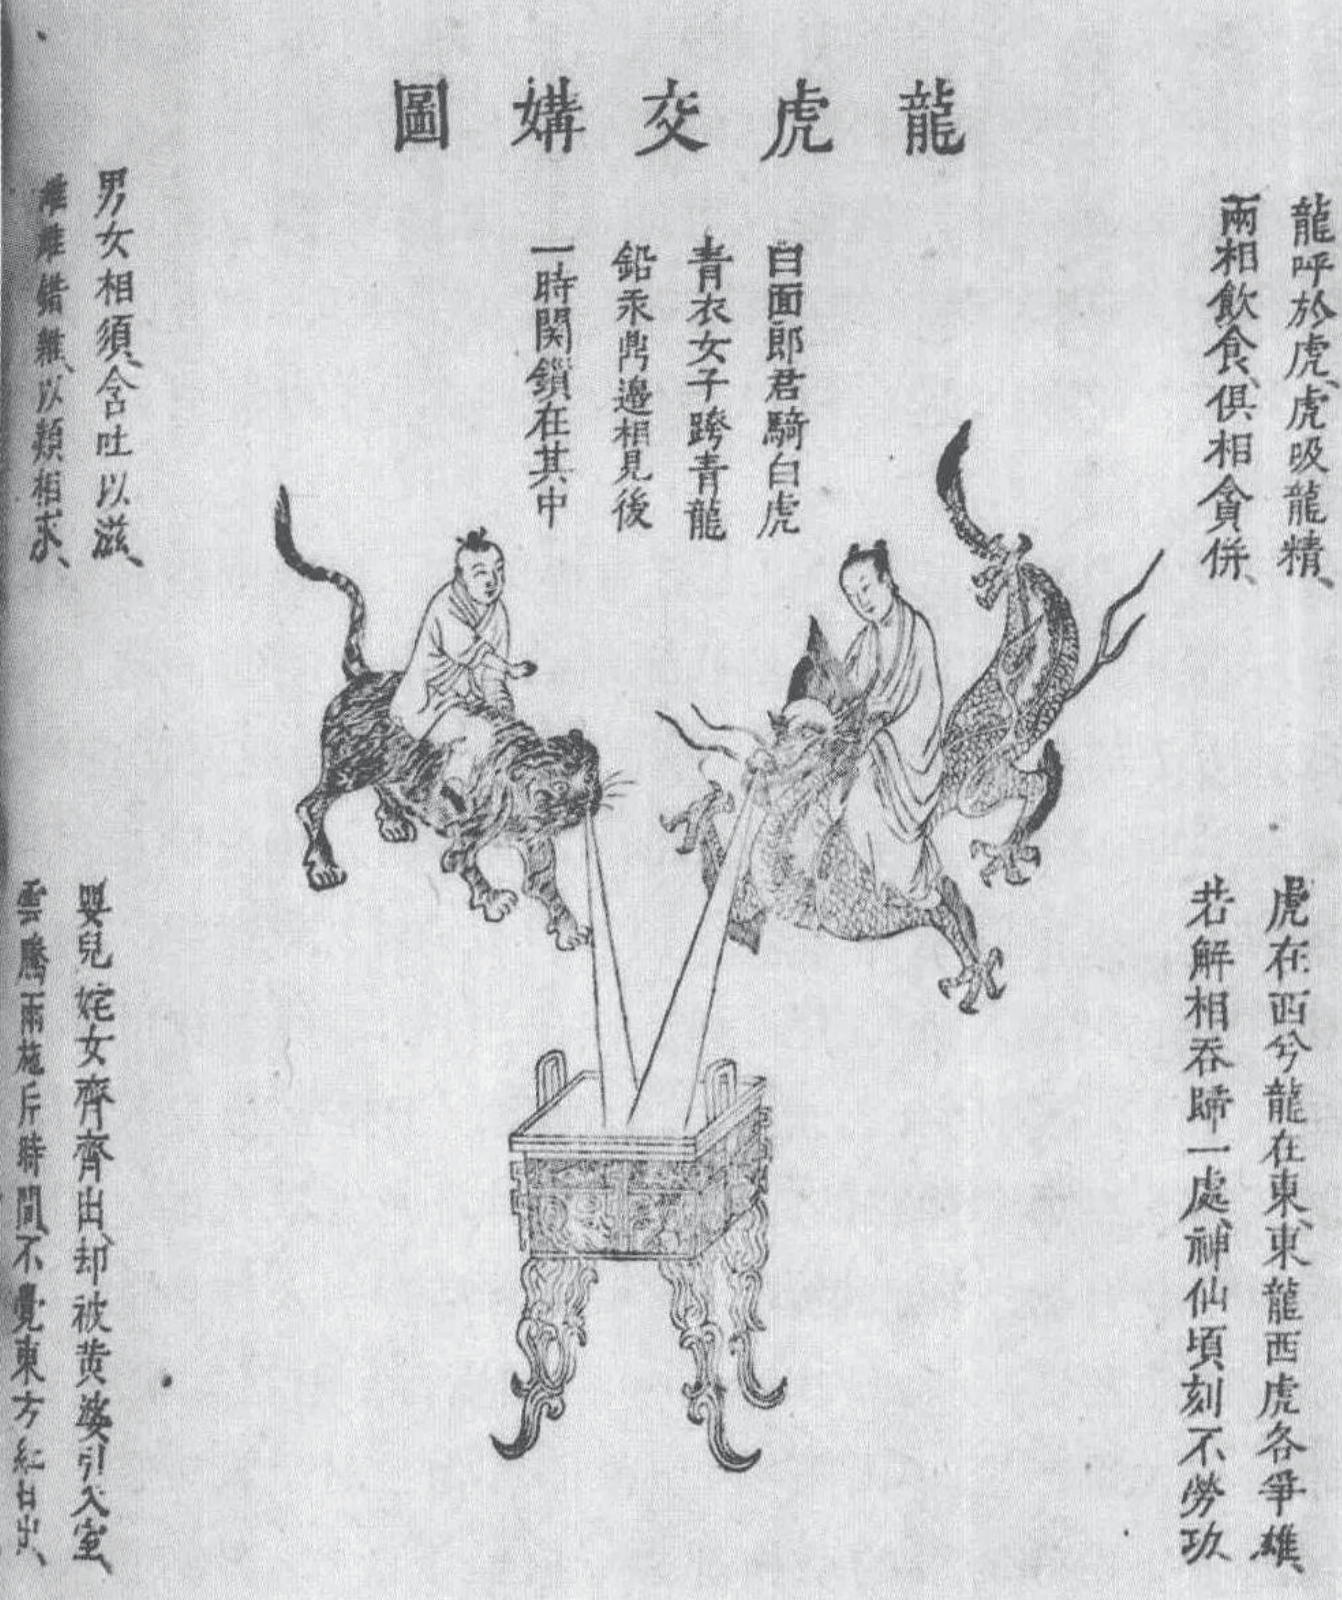 龍虎交媾圖
龍呼於虎、虎吸龍精、
兩相飲食、俱相貪併、
白面郎君騎白虎
青衣女子跨青龍
鉛汞鼎邊相見後
一時関鎖在其中
男女相須、含吐以滋、
雌雄錯雜、以類相求、
虎在西兮龍在東、東龍西虎各爭雄、
若解相吞歸一處、神仙頃刻不勞功
嬰兒姹女齊齊出、却被黄婆引入室、
雲騰雨施片時間、不覺東方紅日出、